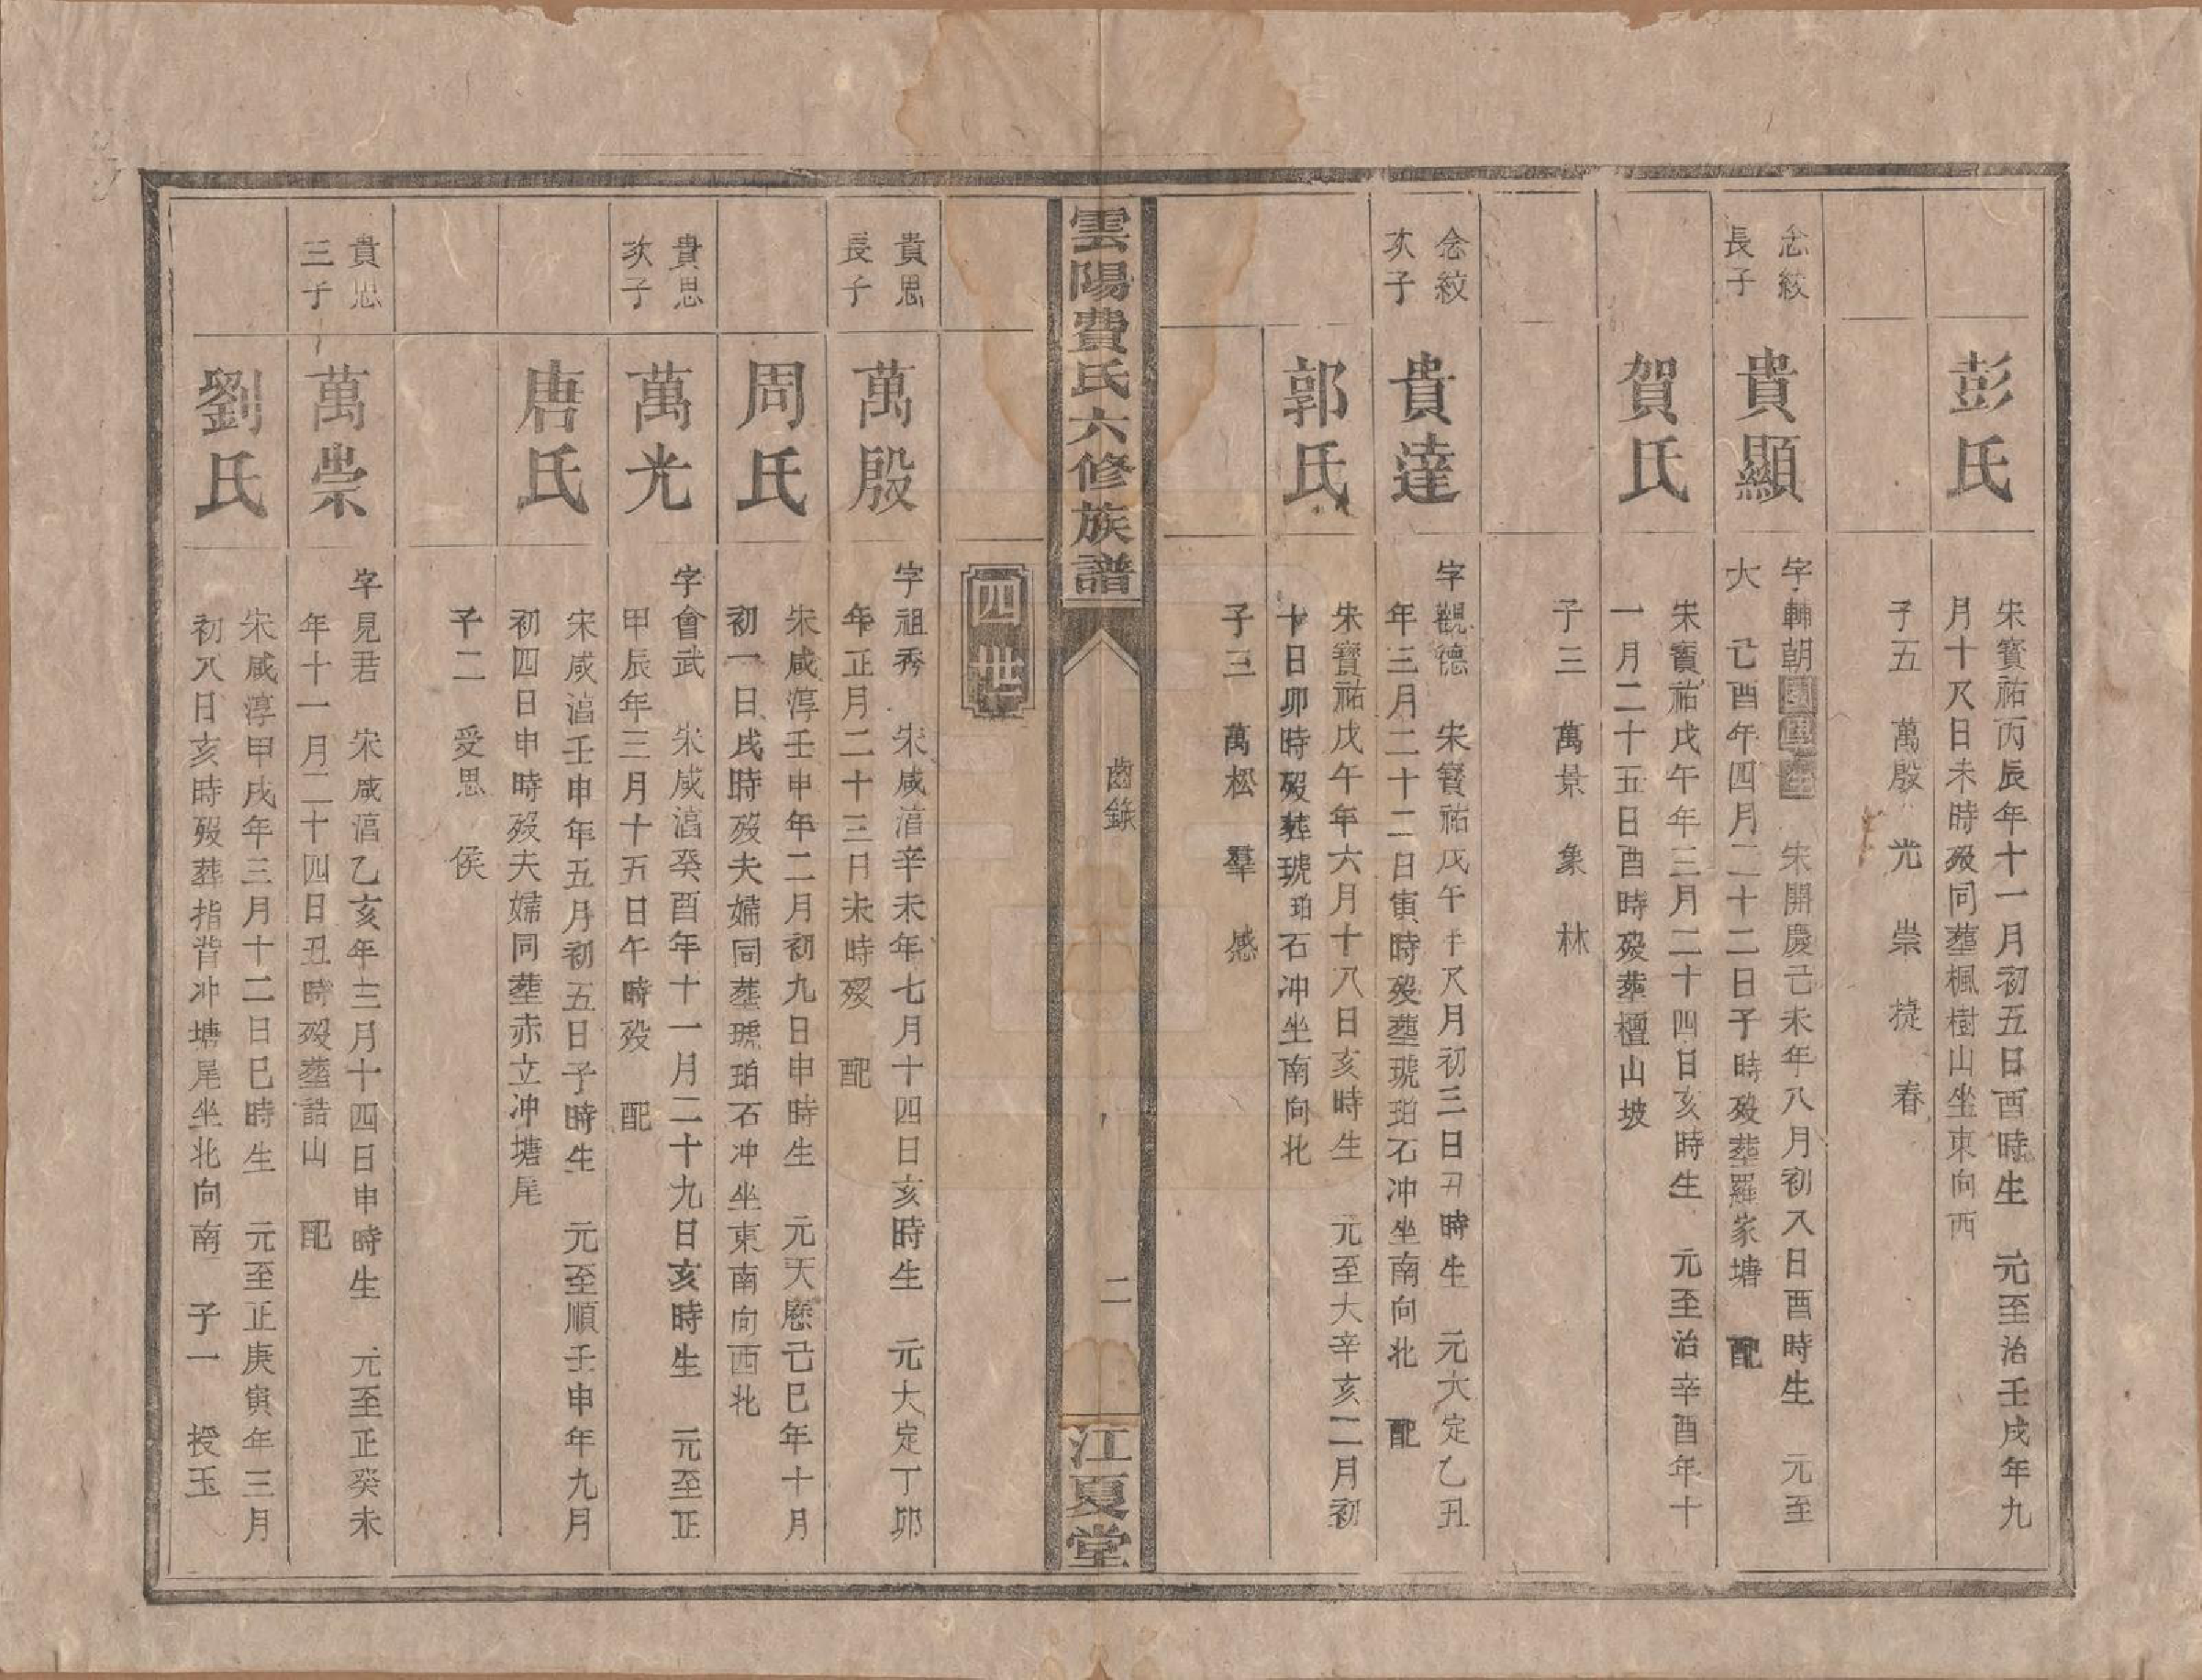 彭氏
宋寳祐丙辰年十一月初五日酉時生　元至治壬戌年九
月十八日未時歿同塟楓樹山坐東向西
子五　萬殷　光　崇　㨗　春
念紋
長子
貴顯
字輔朝　宋開慶己未年八月初八日酉時生　元至
大　己酉年四月二十二日子時歿塟羅家塘　配
賀氏
宋寳祐戊午年三月二十四日亥時生　元至治辛酉年十
一月二十五日酉時歿塟檀山坡
子三　萬景　象　林
念紋
次子
貴達
字觀德　宋寳祐戊午年八月初三日丑時生　元大定乙丑
年三月二十二日寅時歿塟琥珀石冲坐南向北　配
郭氏
宋寳祐戊午年六月十八日亥時生　元至大辛亥二月初
十日卯時歿塟琥珀石冲坐南向北
子三　萬松　羣　感
雲陽費氏六修族譜
齒錄
二
江夏堂
四世
貴思
長子
萬殷
字祖秀　宋咸淳辛未年七月十四日亥時生　元大定丁卯
年正月二十三日未時歿　配
周氏
宋咸淳壬申年二月初九日申時生　元天厯己巳年十月
初一日戌時歿夫婦同塟琥珀石冲坐東南向西北
貴思
次子
萬光
字會武　宋咸淳癸酉年十一月二十九日亥時生　元至正
甲辰年三月十五日午時歿　配
唐氏
宋咸淳壬申年五月初五日子時生　元至順壬申年九月
初四日申時歿夫婦同塟赤立冲塘尾
子二　受思　侯
貴思
三子
萬崇
字見君　宋咸淳乙亥年三月十四日申時生　元至正癸未
年十一月二十四日丑時歿塟誥山　配
劉氏
宋咸淳甲戌年三月十二日巳時生　元至正庚寅年三月
初八日亥時歿塟指背冲塘尾坐北向南　子一　授玉